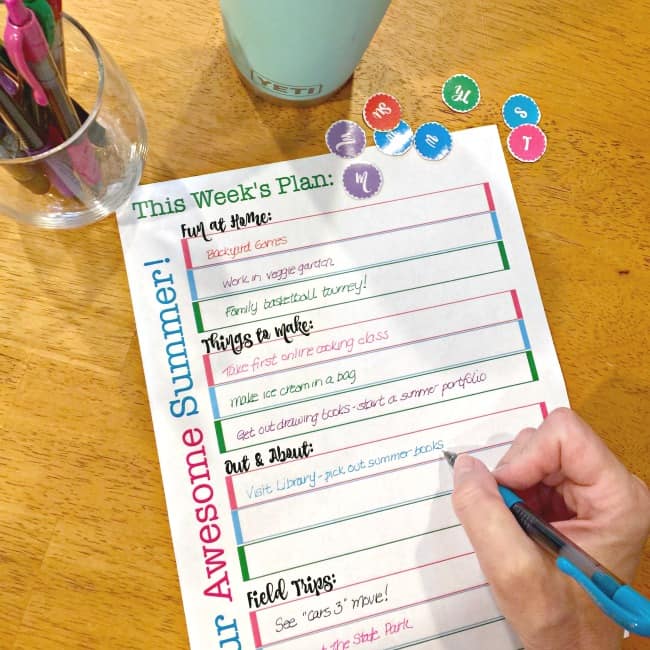 YETI
M
Su
W
Th
S
T
M
This Week's Plan:
Fun at Home:
Backyard Games
Work in veggie garden
Family basketball tourney!
Things to make:
Take first online cooking class
make ice cream in a bag
Get out drawing books - start a summer portfolio
Out & About:
Visit Library - pick out summer books
Field Trips:
See "Cars 3" Movie!
at the State Park
Awesome Summer!